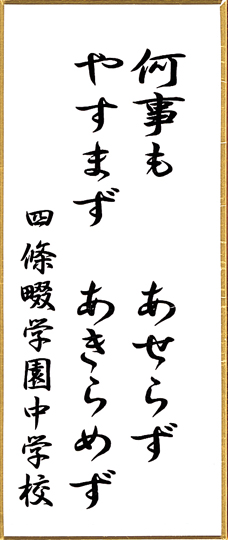 何事も　あせらず
やすまず　あきらめず
四條畷学園中学校